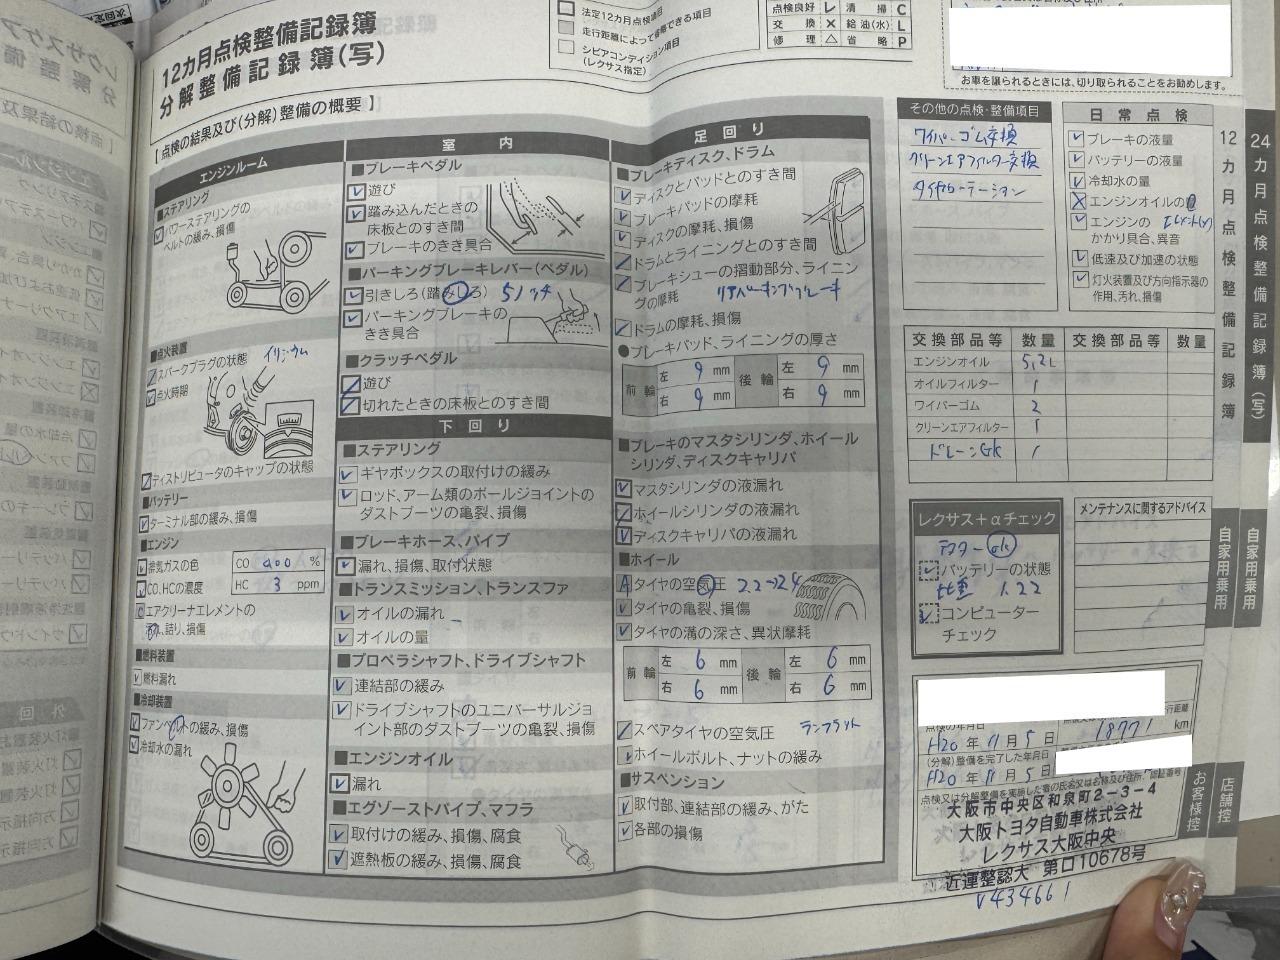 12カ月点検整備記録簿
分解整備記録簿(写)
【点検の結果及び(分解)整備の概要】
法定12カ月点検項目
走行距離によって省略できる項目
シビアコンディション項目
(レクサス指定)
点検良好 レ 清掃 C
交換 × 給油(水) L
修理 △ 省略 P
お車を譲られるときには、切り取られることをお勧めします。
エンジンルーム
■ステアリング
パワーステアリングの
ベルトの緩み、損傷
■点火装置
スパークプラグの状態 イリジウム
点火時期
ディストリビュータのキャップの状態
■バッテリー
ターミナル部の緩み、損傷
■エンジン
排気ガスの色
CO %
CO、HCの濃度
HC 3 ppm
エアクリーナエレメントの
詰り、損傷
■燃料装置
燃料漏れ
■冷却装置
ファンベルトの緩み、損傷
冷却水の漏れ
室内
■ブレーキペダル
遊び
踏み込んだときの
床板とのすき間
ブレーキのきき具合
■パーキングブレーキレバー(ペダル)
引きしろ(踏みしろ) 5ノッチ
パーキングブレーキの
きき具合
■クラッチペダル
遊び
切れたときの床板とのすき間
下回り
■ステアリング
ギヤボックスの取付けの緩み
ロッド、アーム類のボールジョイントの
ダストブーツの亀裂、損傷
■ブレーキホース、パイプ
漏れ、損傷、取付状態
■トランスミッション、トランスファ
オイルの漏れ
オイルの量
■プロペラシャフト、ドライブシャフト
連結部の緩み
ドライブシャフトのユニバーサルジョ
イント部のダストブーツの亀裂、損傷
■エンジンオイル
漏れ
■エグゾーストパイプ、マフラ
取付けの緩み、損傷、腐食
遮熱板の緩み、損傷、腐食
足回り
■ブレーキディスク、ドラム
ディスクとパッドとのすき間
ブレーキパッドの摩耗
ディスクの摩耗、損傷
ドラムとライニングとのすき間
ブレーキシューの摺動部分、ライニン
グの摩耗 リアパーキングブレーキ
ドラムの摩耗、損傷
●ブレーキパッド、ライニングの厚さ
前輪 左 9 mm 後輪 左 9 mm
右 9 mm 右 9 mm
■ブレーキのマスタシリンダ、ホイール
シリンダ、ディスクキャリパ
マスタシリンダの液漏れ
ホイールシリンダの液漏れ
ディスクキャリパの液漏れ
■ホイール
A タイヤの空気圧 2.2→2.4
タイヤの亀裂、損傷
タイヤの溝の深さ、異状摩耗
前輪 左 6 mm 後輪 左 6 mm
右 6 mm 右 6 mm
スペアタイヤの空気圧 ランフラット
ホイールボルト、ナットの緩み
■サスペンション
取付部、連結部の緩み、がた
各部の損傷
その他の点検・整備項目
ワイパーゴム交換
クリーンエアフィルター交換
タイヤローテーション
日常点検
ブレーキの液量
バッテリーの液量
冷却水の量
エンジンオイルの
エンジンの エレメント(×)
かかり具合、異音
低速及び加速の状態
灯火装置及び方向指示器の
作用、汚れ、損傷
交換部品等 数量 交換部品等 数量
エンジンオイル 5.2L
オイルフィルター 1
ワイパーゴム 2
クリーンエアフィルター 1
ドレーンGk 1
レクサス+αチェック
バッテリーの状態
比重 1.22
コンピューター
チェック
メンテナンスに関するアドバイス
点検の年月日
H20年11月5日
18771 km
(分解)整備を完了した年月日
H20年11月5日
点検又は分解整備を実施した者の氏名又は名称及び住所、認証番号
大阪市中央区和泉町2-3-4
大阪トヨタ自動車株式会社
レクサス大阪中央
近運整認大 第口10678号
V434661
12カ月点検整備記録簿
自家用乗用
お客様控
24カ月点検整備記録簿(写)
自家用乗用
店舗控